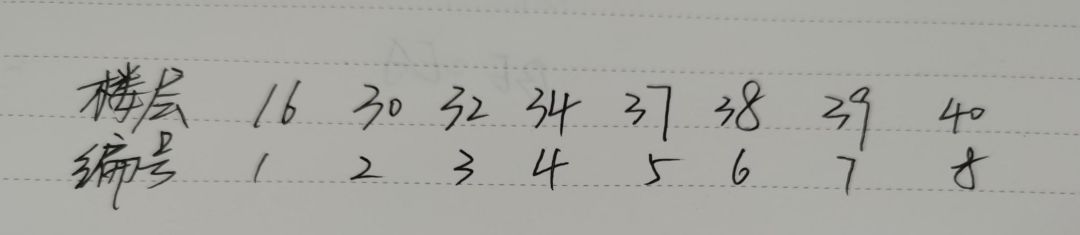 楼层 16 30 32 34 37 38 39 40
编号 1 2 3 4 5 6 7 8